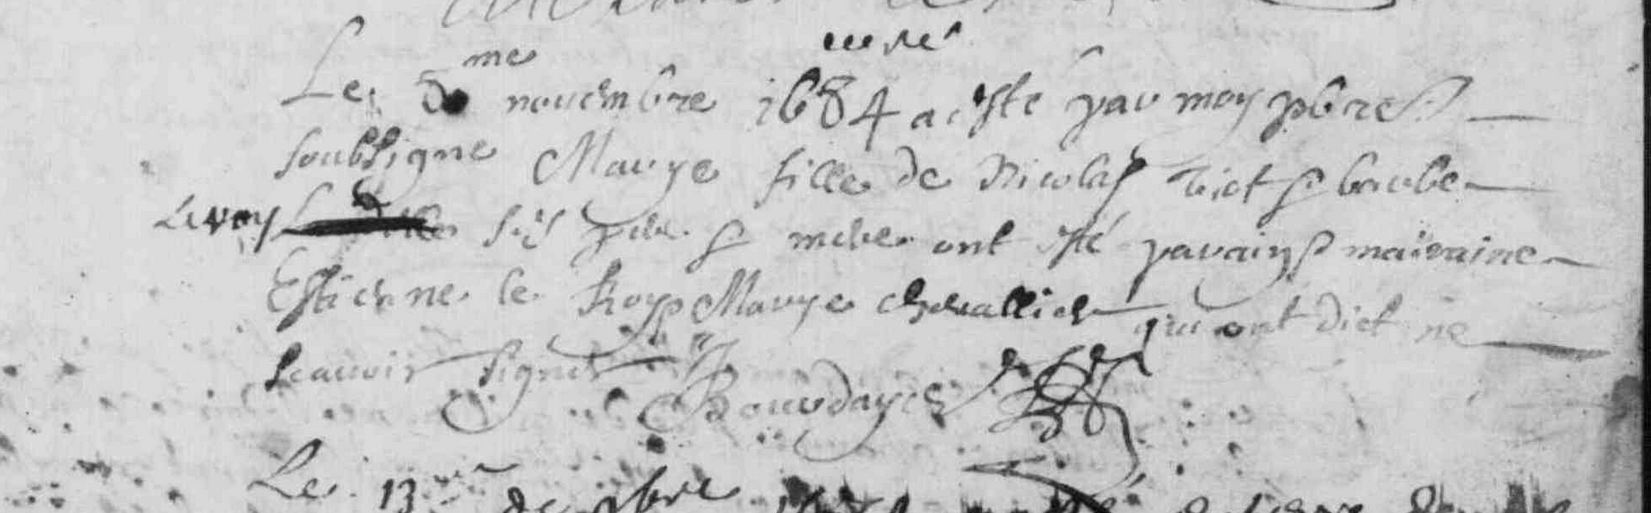 Le 8me novembre 1684 a esté par moy pbre
soubsigne Marye fille de Nicolas Viet & barbe
Leroy ses pere & mere ont esté parain & maraine
Estienne le Roy & Marye chevallier qui ont dict ne
scavoir signer
Bourdayes
Le 13